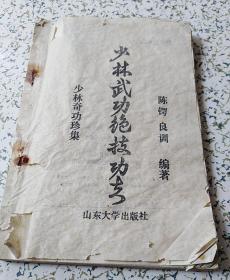 少林武功绝技功夫
少林奇功珍集
陈锷 良训 编著
山东大学出版社